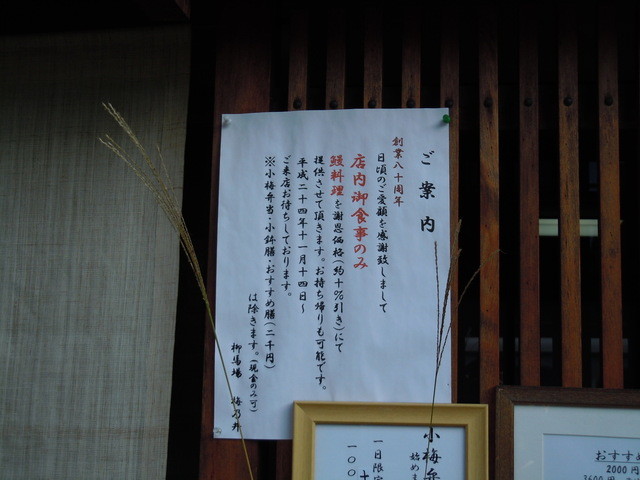 ご案内
創業八十周年
日頃のご愛顧を感謝致しまして
店内御食事のみ
鰻料理を謝恩価格(約十%引き)にて
提供させて頂きます。お持ち帰りも可能です。
平成二十四年十一月十四日～
ご来店お待ちしております。
※小梅弁当・小鉢膳・おすすめ膳(二千円)
は除きます。(現金のみ可)
柳馬場 梅乃井
小梅弁
始めま
一日限定
十
一〇〇
おすすめ
2000円
3600円